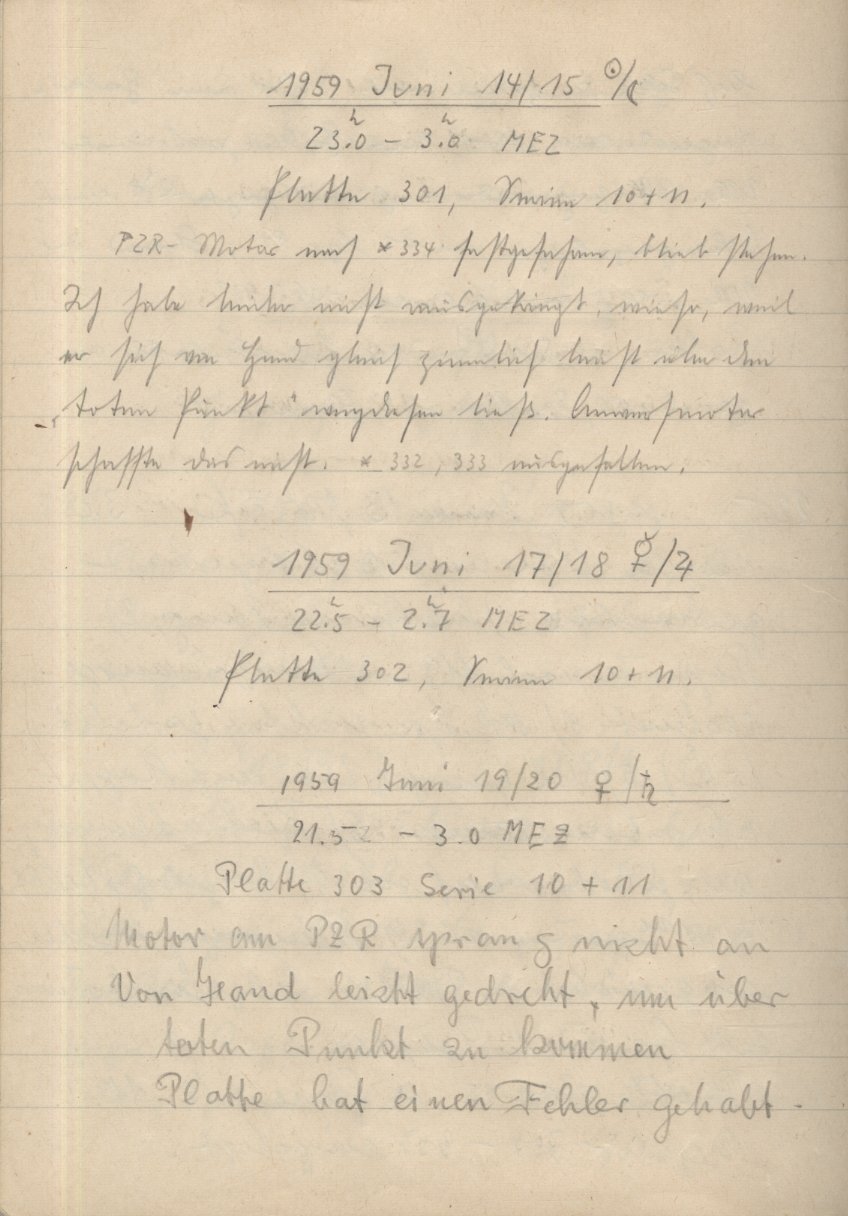 1959 Juni 14/15 ☉/☾
23.0ʰ – 3.0ʰ MEZ
Platte 301, Serien 10 + 11.
PZR-Motor nach * 334 festgefahren, blieb stehen.
Ich habe leider nicht rausgekriegt, wieso, weil
er sich von Hand gleich ziemlich leicht über den
„toten Punkt“ wegdrehen ließ. Anwurfmotor
schaffte das nicht. * 332, 333 ausgefallen.
1959 Juni 17/18 ☿/♃
22.5ʰ – 2.7ʰ MEZ
Platte 302, Serien 10 + 11.
1959 Juni 19/20 ♀/♄
21.5 – 3.0 MEZ
Platte 303 Serie 10 + 11
Motor am PZR sprang nicht an
Von Hand leicht gedreht, um über
toten Punkt zu kommen
Platte hat einen Fehler gehabt.